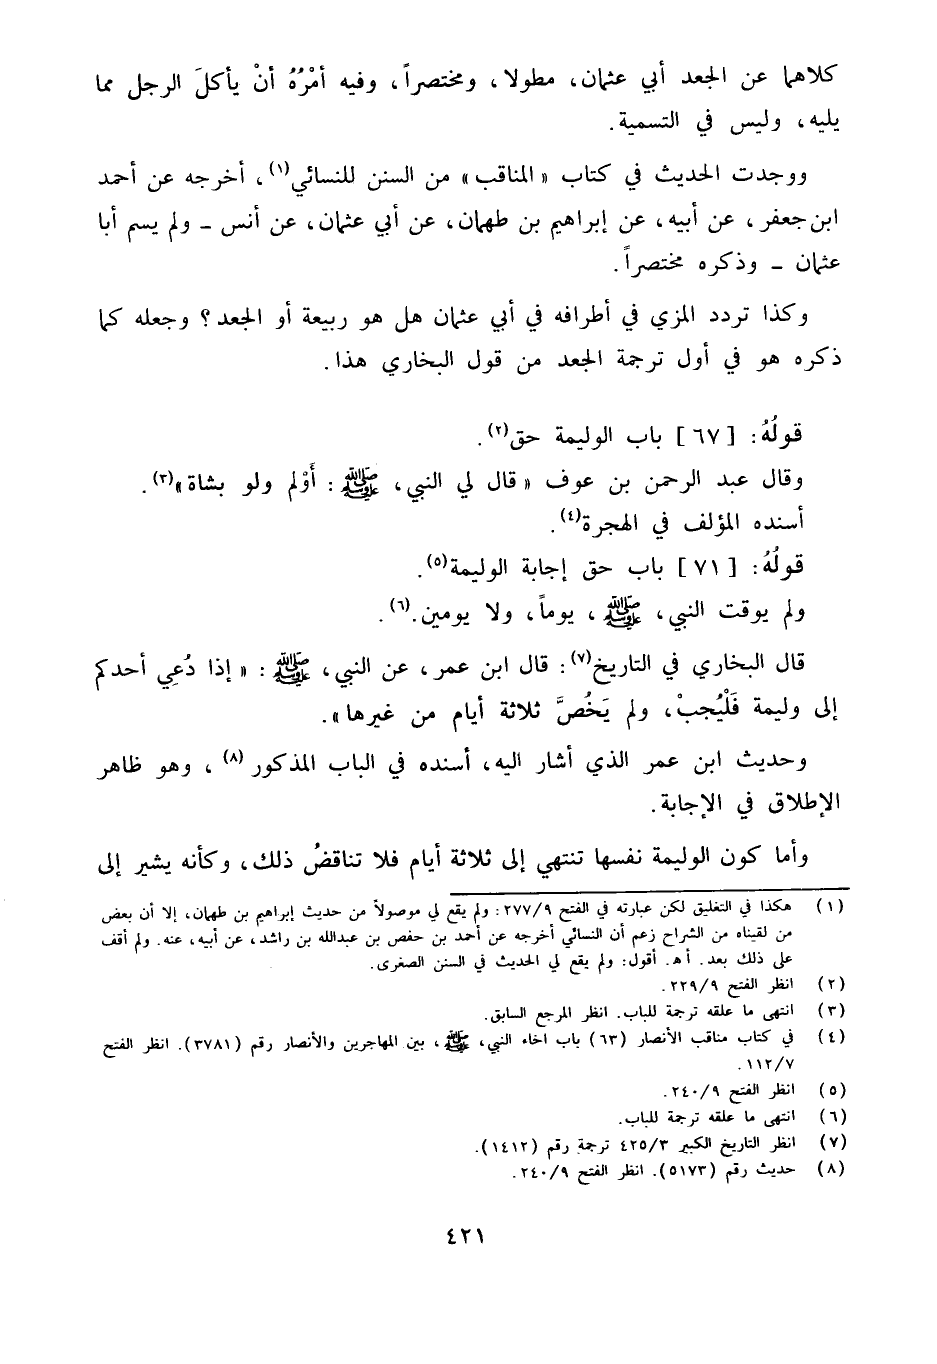 كلاهما عن الجعد أبي عثمان، مطولا، ومختصراً، وفيه أمْرُهُ أنْ يأكلَ الرجل مما
يليه، وليس في التسمية.
ووجدت الحديث في كتاب «المناقب» من السنن للنسائي(١)، أخرجه عن أحمد
ابن جعفر، عن أبيه، عن إبراهيم بن طهمان، عن أبي عثمان، عن أنس ـ ولم يسم أبا
عثمان ـ وذكره مختصراً.
وكذا تردد المزي في أطرافه في أبي عثمان هل هو ربيعة أو الجعد؟ وجعله كما
ذكره هو في أول ترجمة الجعد من قول البخاري هذا.
قولُهُ: [٦٧] باب الوليمة حق(٢).
وقال عبد الرحمن بن عوف «قال لي النبي، ﷺ: أَوْلم ولو بشاة»(٣).
أسنده المؤلف في الهجرة(٤).
قولُهُ: [٧١] باب حق إجابة الوليمة(٥).
ولم يوقت النبي، ﷺ، يوماً، ولا يومين.(٦).
قال البخاري في التاريخ(٧): قال ابن عمر، عن النبي، ﷺ: «إذا دُعِي أحدكم
إلى وليمة فَلْيُجبْ، ولم يَخُصَّ ثلاثة أيام من غيرها».
وحديث ابن عمر الذي أشار اليه، أسنده في الباب المذكور(٨)، وهو ظاهر
الإطلاق في الإجابة.
وأما كون الوليمة نفسها تنتهي إلى ثلاثة أيام فلا تناقضُ ذلك، وكأنه يشير إلى
(١) هكذا في التغليق لكن عبارته في الفتح ٢٧٧/٩: ولم يقع لي موصولاً من حديث إبراهيم بن طهمان، إلا أن بعض
من لقيناه من الشراح زعم أن النسائي أخرجه عن أحمد بن حفص بن عبدالله بن راشد، عن أبيه، عنه. ولم أقف
على ذلك بعد. أهـ. أقول: ولم يقع لي الحديث في السنن الصغرى.
(٢) انظر الفتح ٢٢٩/٩.
(٣) انتهى ما علقه ترجمة للباب. انظر المرجع السابق.
(٤) في كتاب مناقب الأنصار (٦٣) باب اخاء النبي، ﷺ، بين المهاجرين والأنصار رقم (٣٧٨١). انظر الفتح
١١٢/٧.
(٥) انظر الفتح ٢٤٠/٩.
(٦) انتهى ما علقه ترجمة للباب.
(٧) انظر التاريخ الكبير ٤٢٥/٣ ترجمة رقم (١٤١٢).
(٨) حديث رقم (٥١٧٣). انظر الفتح ٢٤٠/٩.
٤٢١